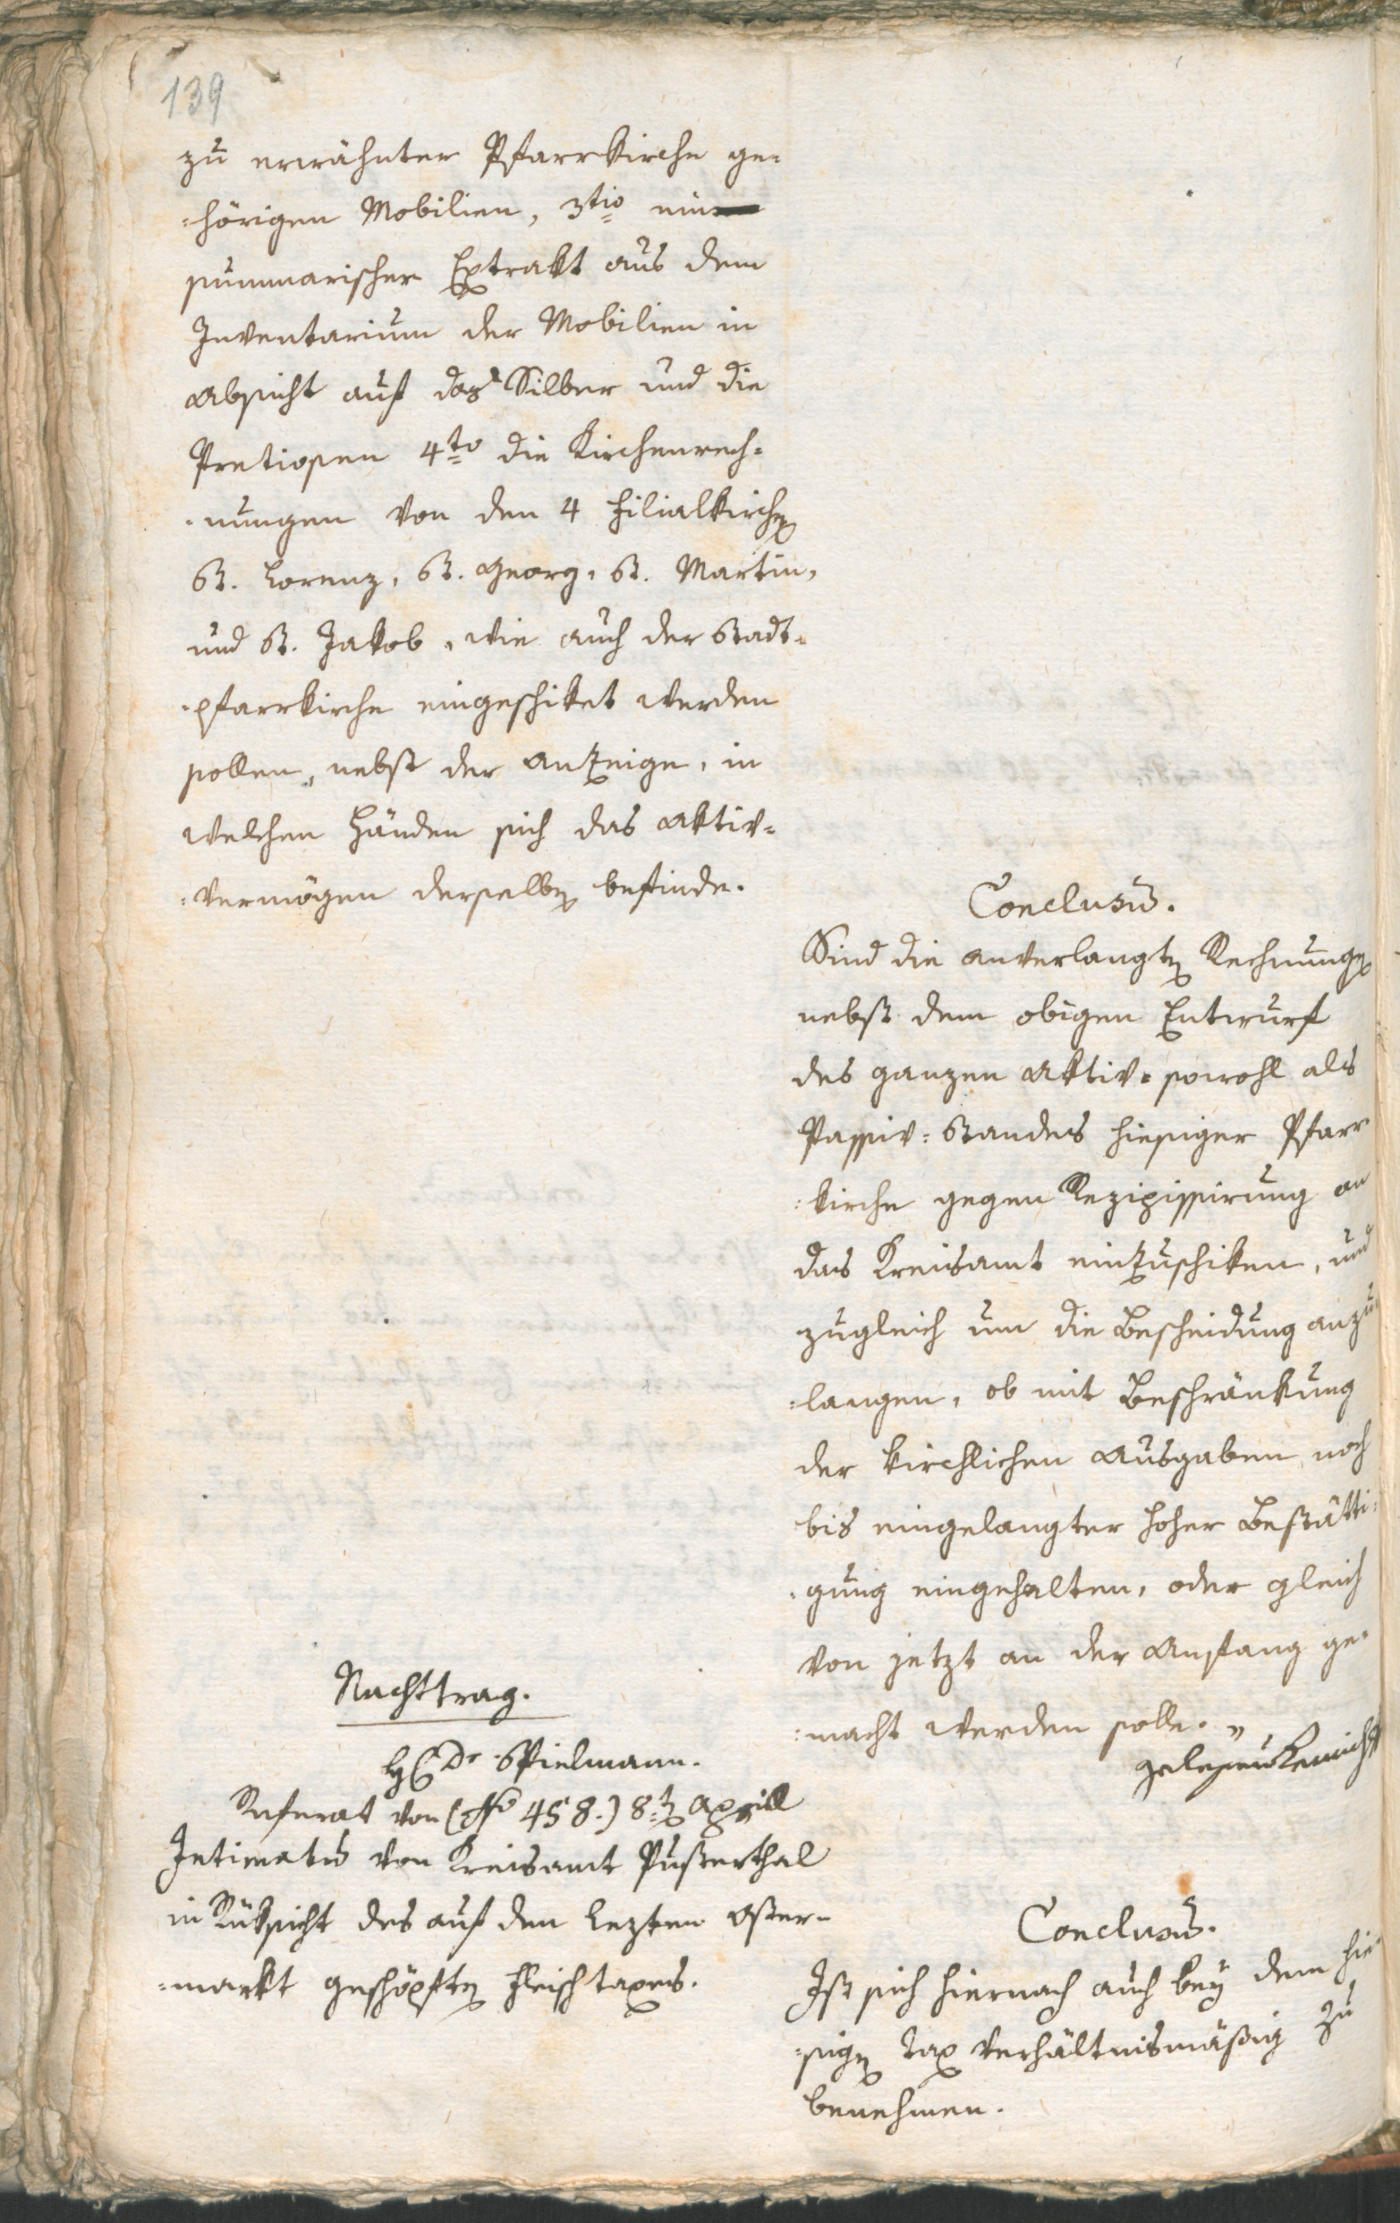 139
zu erwähnter Pfarrkirche ge-
-hörigen Mobilien, 3tio ein
summarischer Extrakt aus dem
Inventarium der Mobilien in
Absicht auf das Silber und die
Pretiosen 4to die Kirchenrech-
-nungen von den 4 Filialkirchen
St. Lorenz, St. Georg, St. Martin,
und St. Jakob, wie auch der Stadt-
-pfarrkirche eingeschiket werden
sollen, nebst der Anzeige, in
welchen Händen sich das Aktiv-
-vermögen derselben befinde.
Conclusum.
Sind die anverlangten Rechnungen
nebst dem obigen Entwurf
des ganzen Aktiv- sowohl als
Passiv-Standes hiesiger Pfarr
-kirche gegen Rezipissirung an
das Kreisamt einzuschiken, und
zugleich um die Bescheidung anzu
-langen, ob mit Beschränkung
der kirchlichen Ausgaben noch
bis eingelangter hoher Bestätti-
-gung eingehalten, oder gleich
von jetzt an der Anfang ge-
-macht werden solle.
Nachttrag.
H. Dr. Spielmann.
Referat von (No 458.) 8ten Aprill
Intimatum von Kreisamt Pusterthal
in Rüksicht des auf den lezten Oster-
-markt geschöpften Fleischtaxes.
Conclusum.
Ist sich hiernach auch bey dem hie-
-sigen Tax verhältnismäßig zu
benehmen.